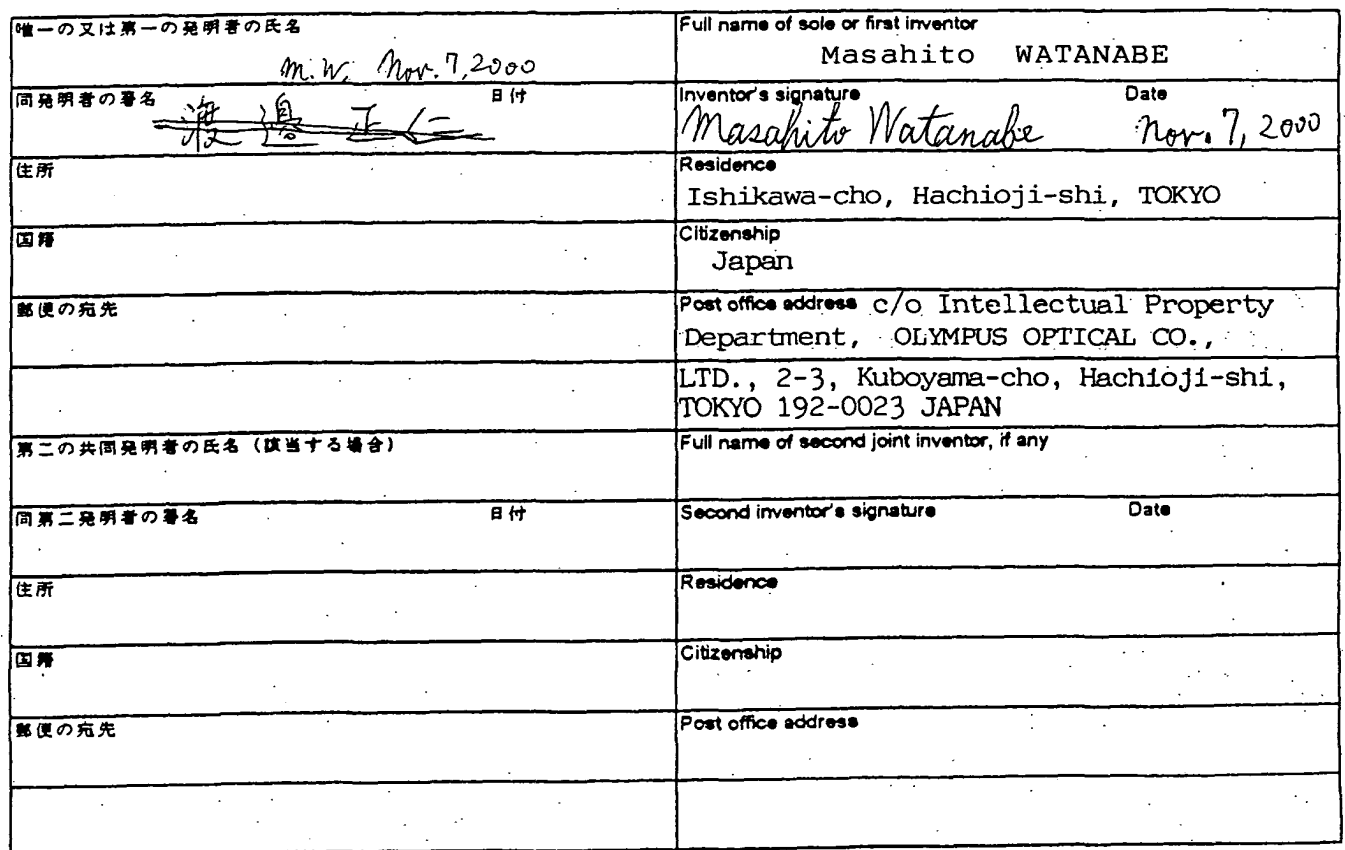 唯一の又は第一の発明者の氏名
Full name of sole or first inventor
Masahito WATANABE
M.W. Nov. 7, 2000
同発明者の署名 日付
渡邉正仁
Inventor's signature Date
Masahito Watanabe Nov. 7, 2000
住所
Residence
Ishikawa-cho, Hachioji-shi, TOKYO
国籍
Citizenship
Japan
郵便の宛先
Post office address c/o Intellectual Property
Department, OLYMPUS OPTICAL CO.,
LTD., 2-3, Kuboyama-cho, Hachioji-shi,
TOKYO 192-0023 JAPAN
第二の共同発明者の氏名（該当する場合）
Full name of second joint inventor, if any
同第二発明者の署名 日付
Second inventor's signature Date
住所
Residence
国籍
Citizenship
郵便の宛先
Post office address